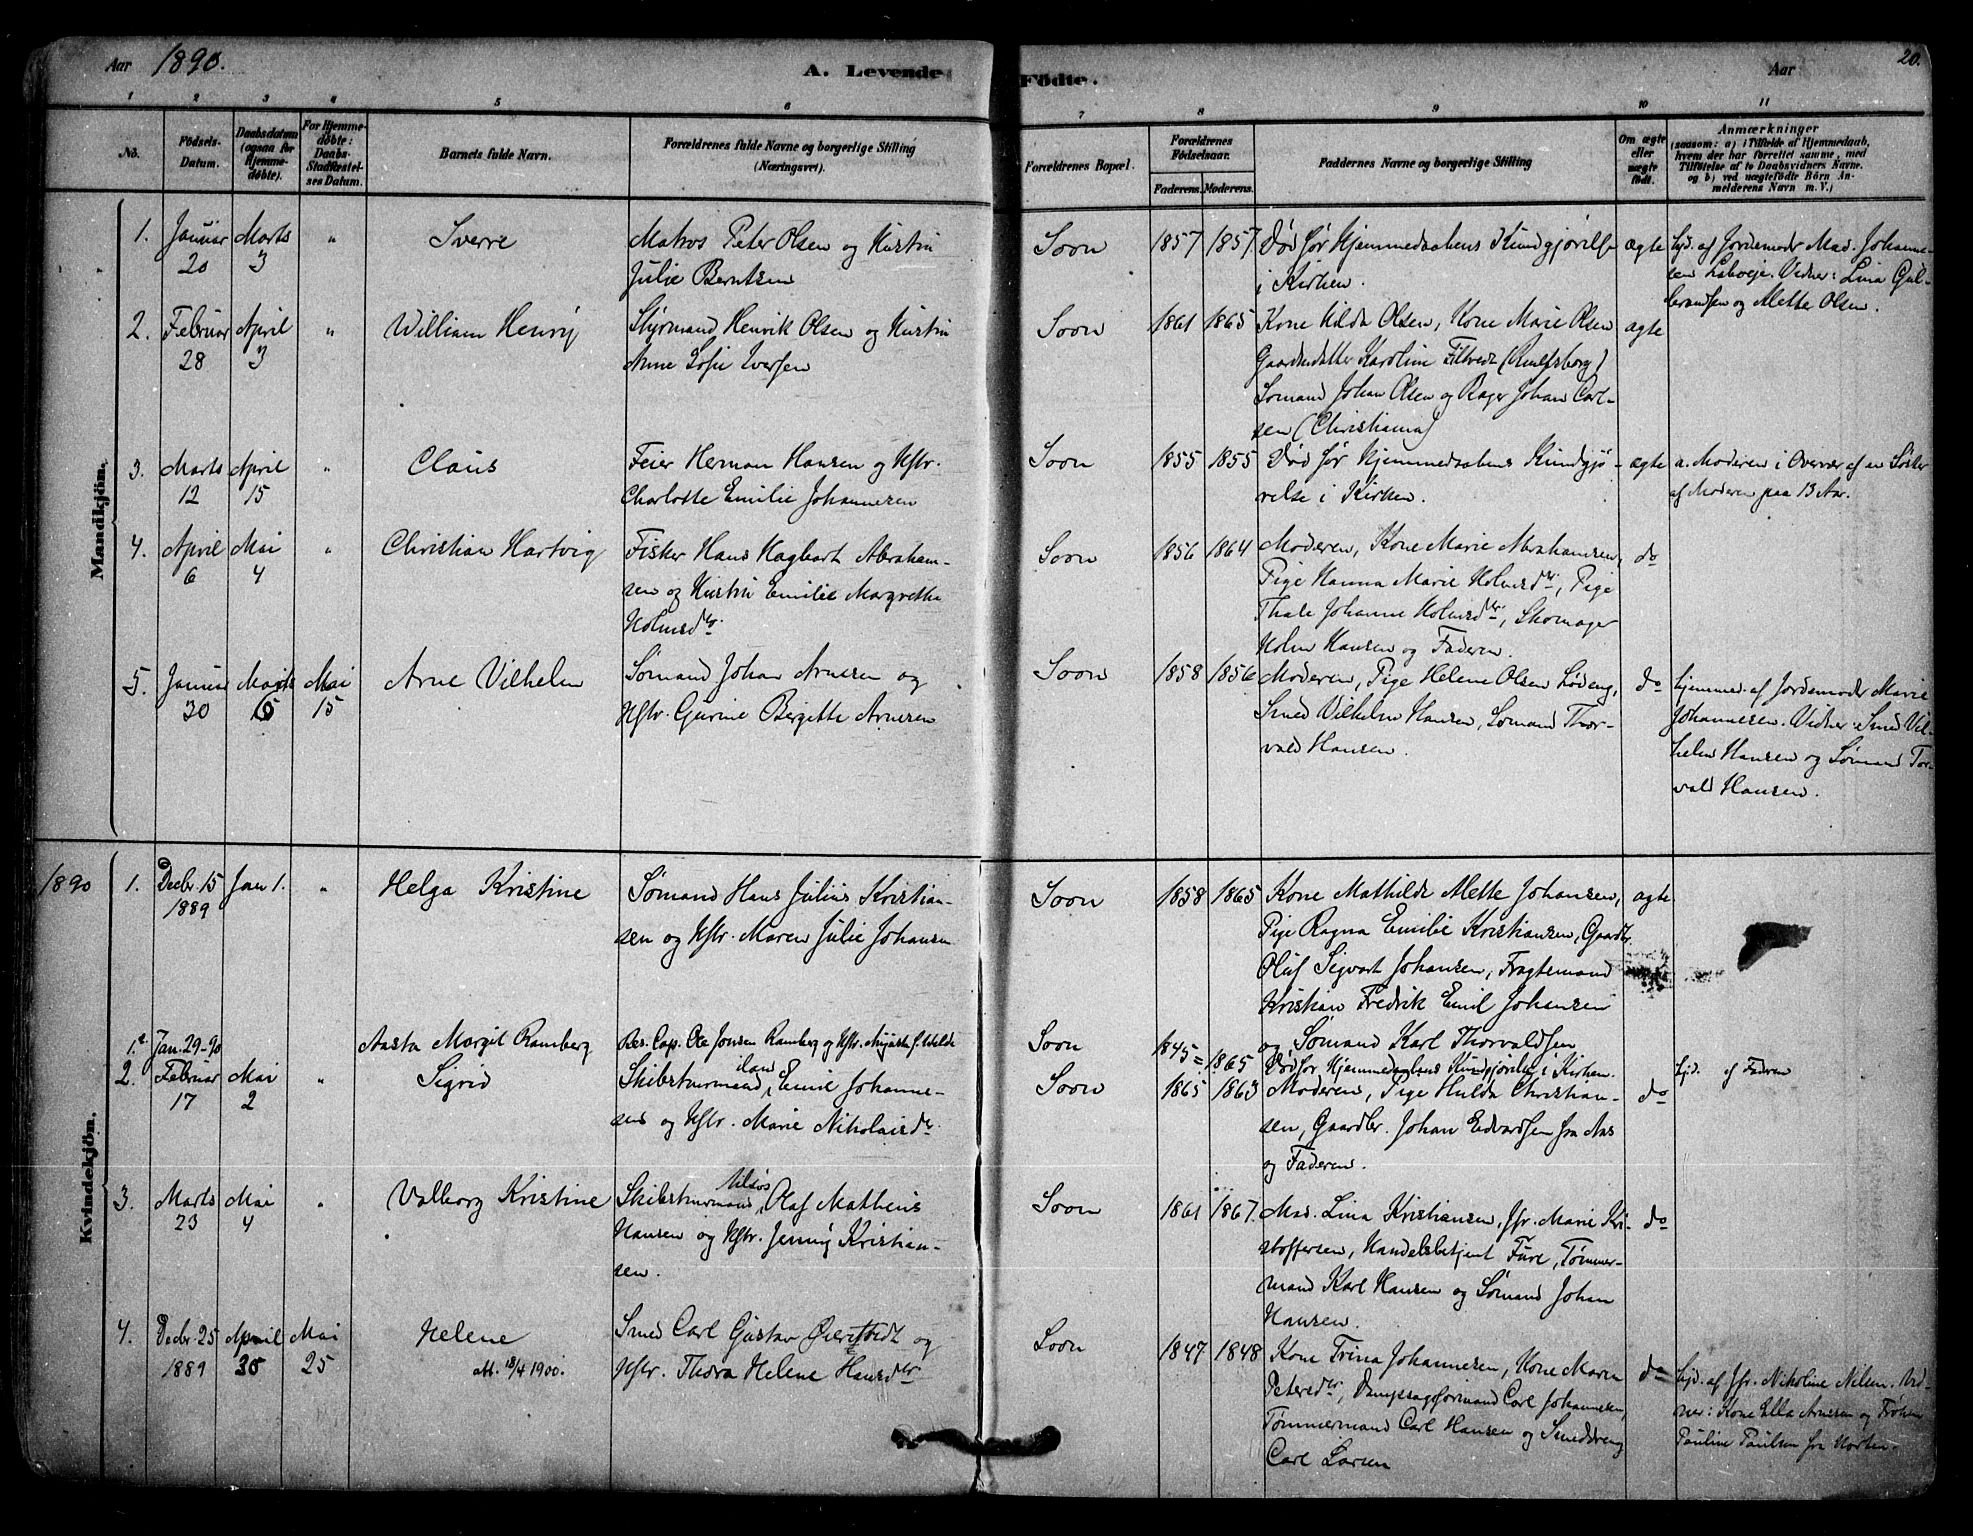 Aar 1890. A. Levende Födte. Aar 20.
1 2 3 4 5 6 7 8 9 10 11
No. Födsels-Datum. Daabsdatum (ogsaa for Hjemmedöbte). For Hjemmedöbte: Daabs-Stadfæstelses Datum. Barnets fulde Navn. Forældrenes fulde Navne og borgerlige Stilling (Næringsvei). Forældrenes Bopæl. Forældrenes Födselsaar. Faderens. Moderens. Faddernes Navne og borgerlige Stilling Om ægte eller uægte födt. Anmærkninger (saasom: a) i Tilfælde af Hjemmedaab, hvem der har forrettet samme, med Tilföielse af to Daabsvidners Navne. og b) ved uægtefödte Börn Anmelderens Navn m. V.)
Mandkjön.
1. Januar 20 Marts 3 " Sverre
Matros Peter Olsen og Hustru
Julie Berntsen
Soon 1857 1857
Død før Hjemmedaabens Kundgjørelse
i Kirken.
ægte
hjd. af Jordemodr Mad. Johanne-
sen Labveje. Vidner: Lina Gul-
brandsen og Mette Olsen.
2. Februar 28 April 3 " William Henry
Styrmand Henrik Olsen og Hustru
Anne Sofie Iversen
Soon 1861 1865
Kone Hilda Olsen, Kone Marie Olsen
Gaardmdatter Karoline Filtvedt
Sømand Johan Olsen og Bager Johan Carl-
sen (Christiania)
ægte
3. Marts 12 April 15 " Claus
Feier Herman Hansen og Hstr.
Charlotte Emilie Johannesen
Soon 1855 1855
Død før Hjemmedaabens Kundgjø-
relse i Kirken.
ægte
a. Moderen i Overvær af en Søster
af Moderen paa 13 Aar.
4. April 6 Mai 4 " Christian Hartvig
Fisker Hans Hagbart Abraham-
sen og Hustru Emilie Margrethe
Holmsdtr.
Soon 1856 1864
Moderen, Kone Marie Abrahamsen,
Pige Hanna Marie Holmsdtr, Pige
Thale Johanne Holmsdtr, Skomager
Holm Hansen og Faderen.
do
5. Januar 30 Marts 15 Mai 15 Arne Vilhelm
Sømand Johan Arnesen og
Hstr. Gurine Birgitte Arnesen
Soon 1858 1856
Moderen, Pige Helene Olsen Lødeng,
Smed Vilhelm Hansen, Sømand Thor-
vald Hansen.
do
hjemmed. af Jordemodr Marie
Johannesen. Vidner: Smed Vil-
helm Hansen og Sømand Tor-
vald Hansen.
Kvindekjön.
1890 1. Decbr. 15 1889 Jan 1. " Helga Kristine
Sømand Hans Julius Kristian-
sen og Hstr. Maren Julie Johansen
Soon 1858 1865
Kone Mathilde Mette Johansen,
Pige Ragna Emilie Kristiansen, Gaardbr.
Oluf Sigvart Johansen, Fragtemand
Kristian Fredrik Emil Johansen
og Sømand Karl Thorvaldsen
ægte
1a. Jan. 29-90 Aasta Margit Ramberg
Res. Cap. Ole Jonsen Ramberg og Hstr.
Soon 1845 = 1865
Død før Hjemmedaabens Kundgjørelse i Kirken.
hjd. af Faderen
2. Februar 17 Mai 2 " Sigrid
Skibstømmermand, Emil Johanne-
sens og Hstr. Marie Nikolaisdtr.
Soon 1865 1863
Moderen, Pige Hulda Christian-
sen, Gaardbr. Johan Edvardsen fra Aas
og Faderen.
do
3. Marts 23 Mai 4 " Valborg Kristine
Skibstømmermand, Nilsøs Olaf Matheus
Hansen og Hstr. Jenny Kristian-
sen.
Soon 1861 1867.
Mad. Lina Kristiansen, Jfr. Marie Kri-
stoffersen, Handelsbetjent Fure, Tømmer-
mand Karl Hansen og Sømand Johan
Hansen.
do
4. Decbr 25 1889 April 30 Mai 25 Helene
Att. 18/4 1900.
Smed Carl Gustav og
Hstr. Thora Helene Hansdtr
Soon 1847 1848
Kone Trina Johannesen, Kone Maren
Petersdtr, Dampsagformand Carl Johannesen,
Tømmermand Carl Hansen og Smeddreng
Carl Larsen
do
hjd. af Jfr. Nikoline Nilsen. Vid-
ner: Kone Ella Arnesen og Frøken
Pauline Paulsen fra Horten.